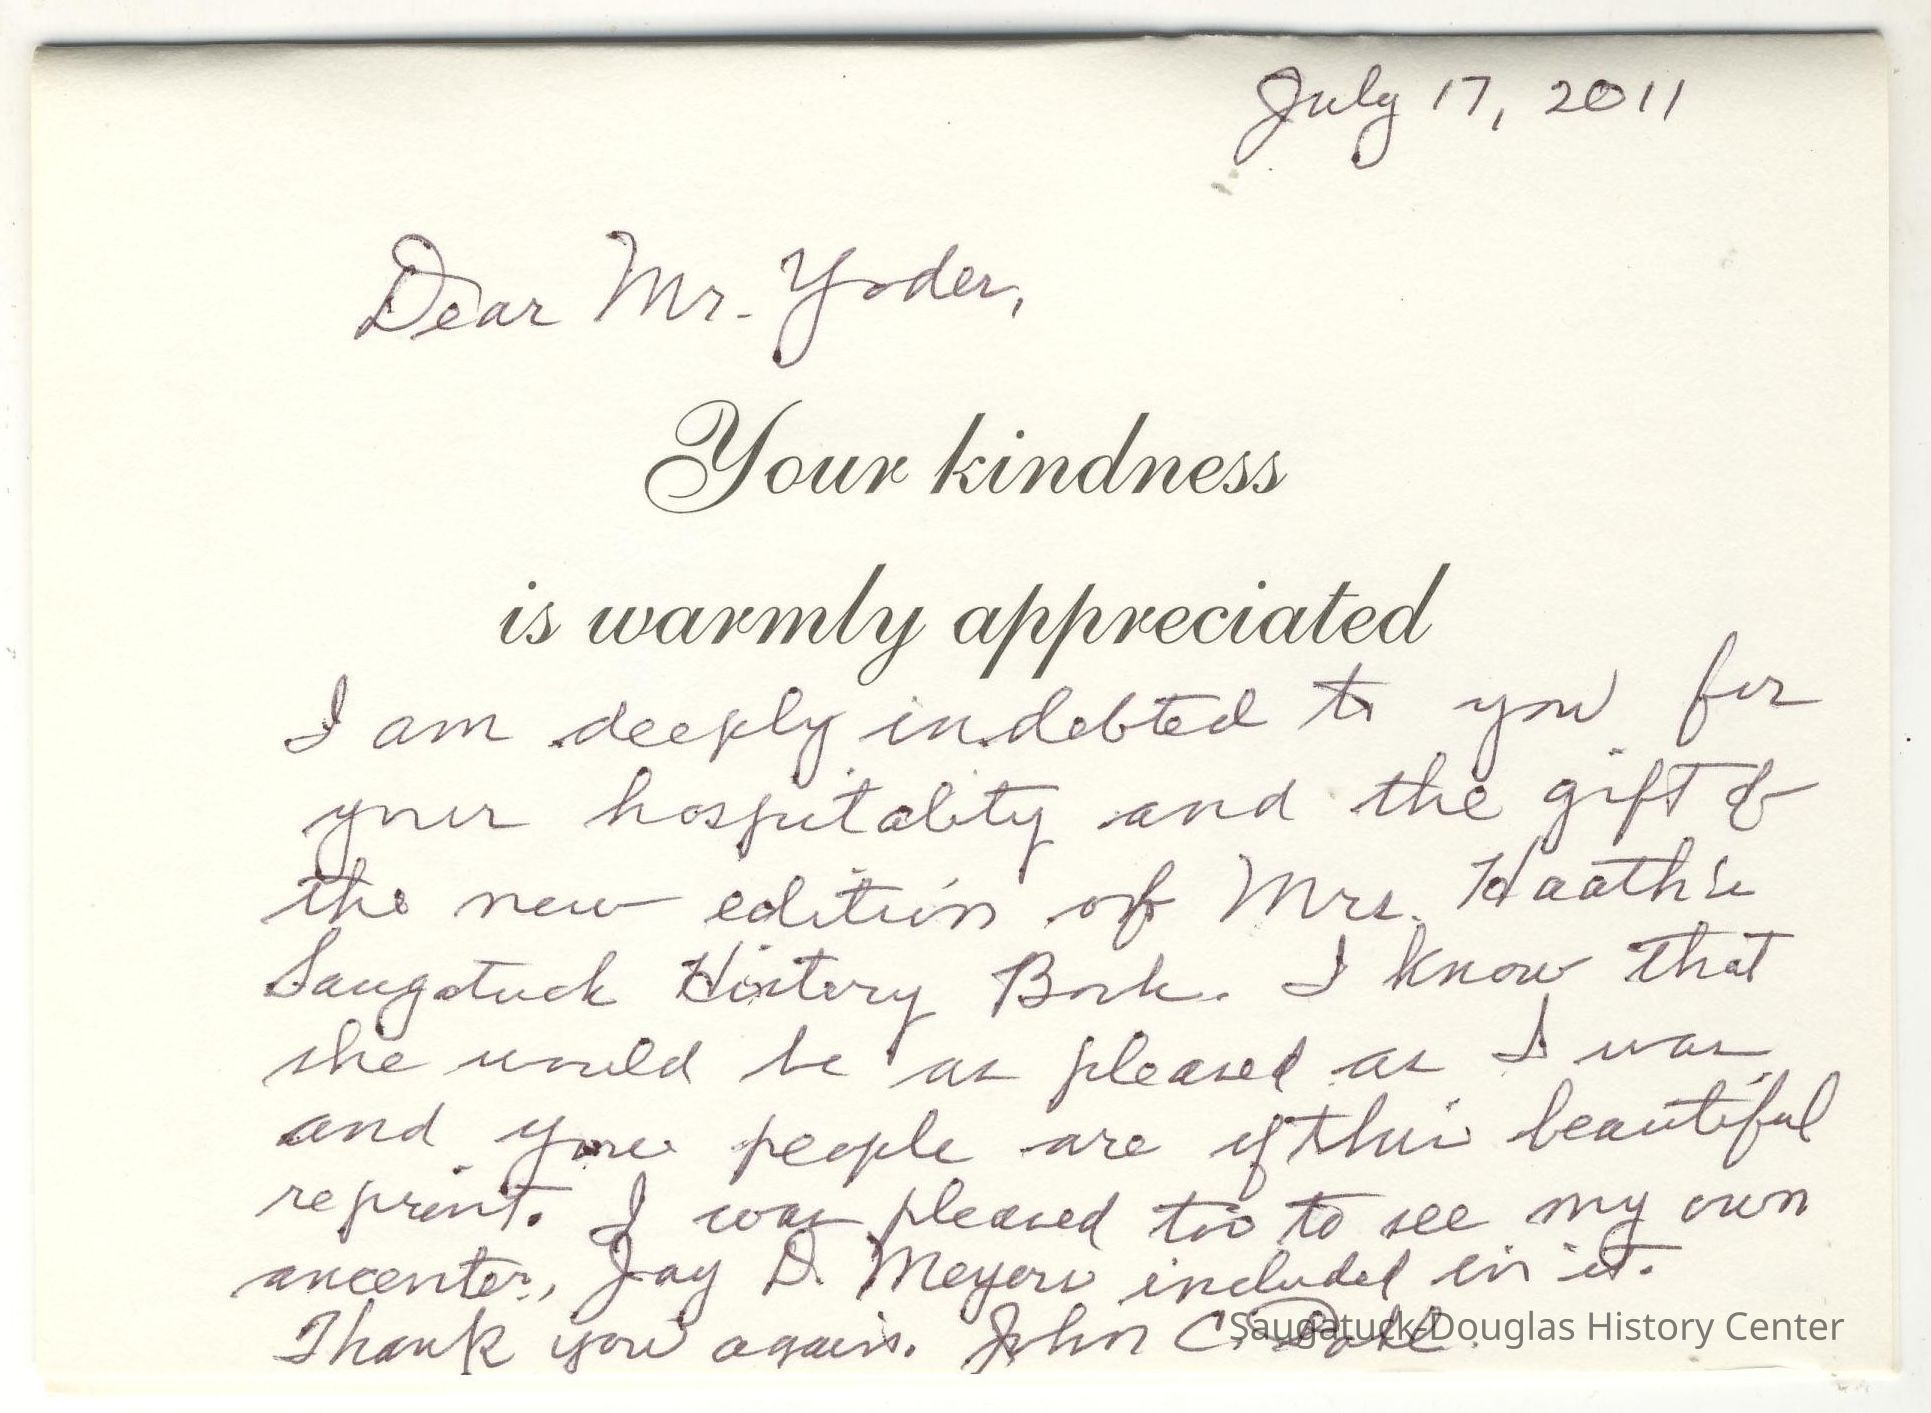 July 17, 2011
Dear Mr. Yoder,
Your kindness
is warmly appreciated
I am deeply indebted to you for
your hospitality and the gift of
the new edition of Mrs. Heath's
Saugatuck History Book. I know that
she would be as pleased as I was
and your people are of this beautiful
reprint. I was pleased too to see my own
ancestor, Jay D. Meyers included in it.
Thank you again. John C.
Saugatuck-Douglas History Center